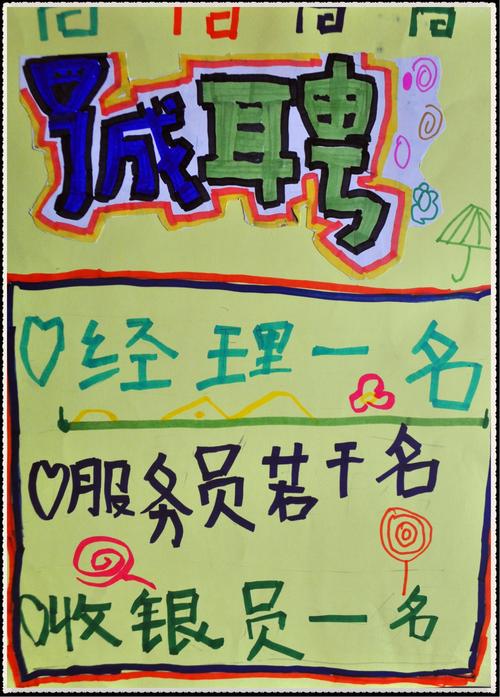 诚聘
经理一名
服务员若干名
收银员一名